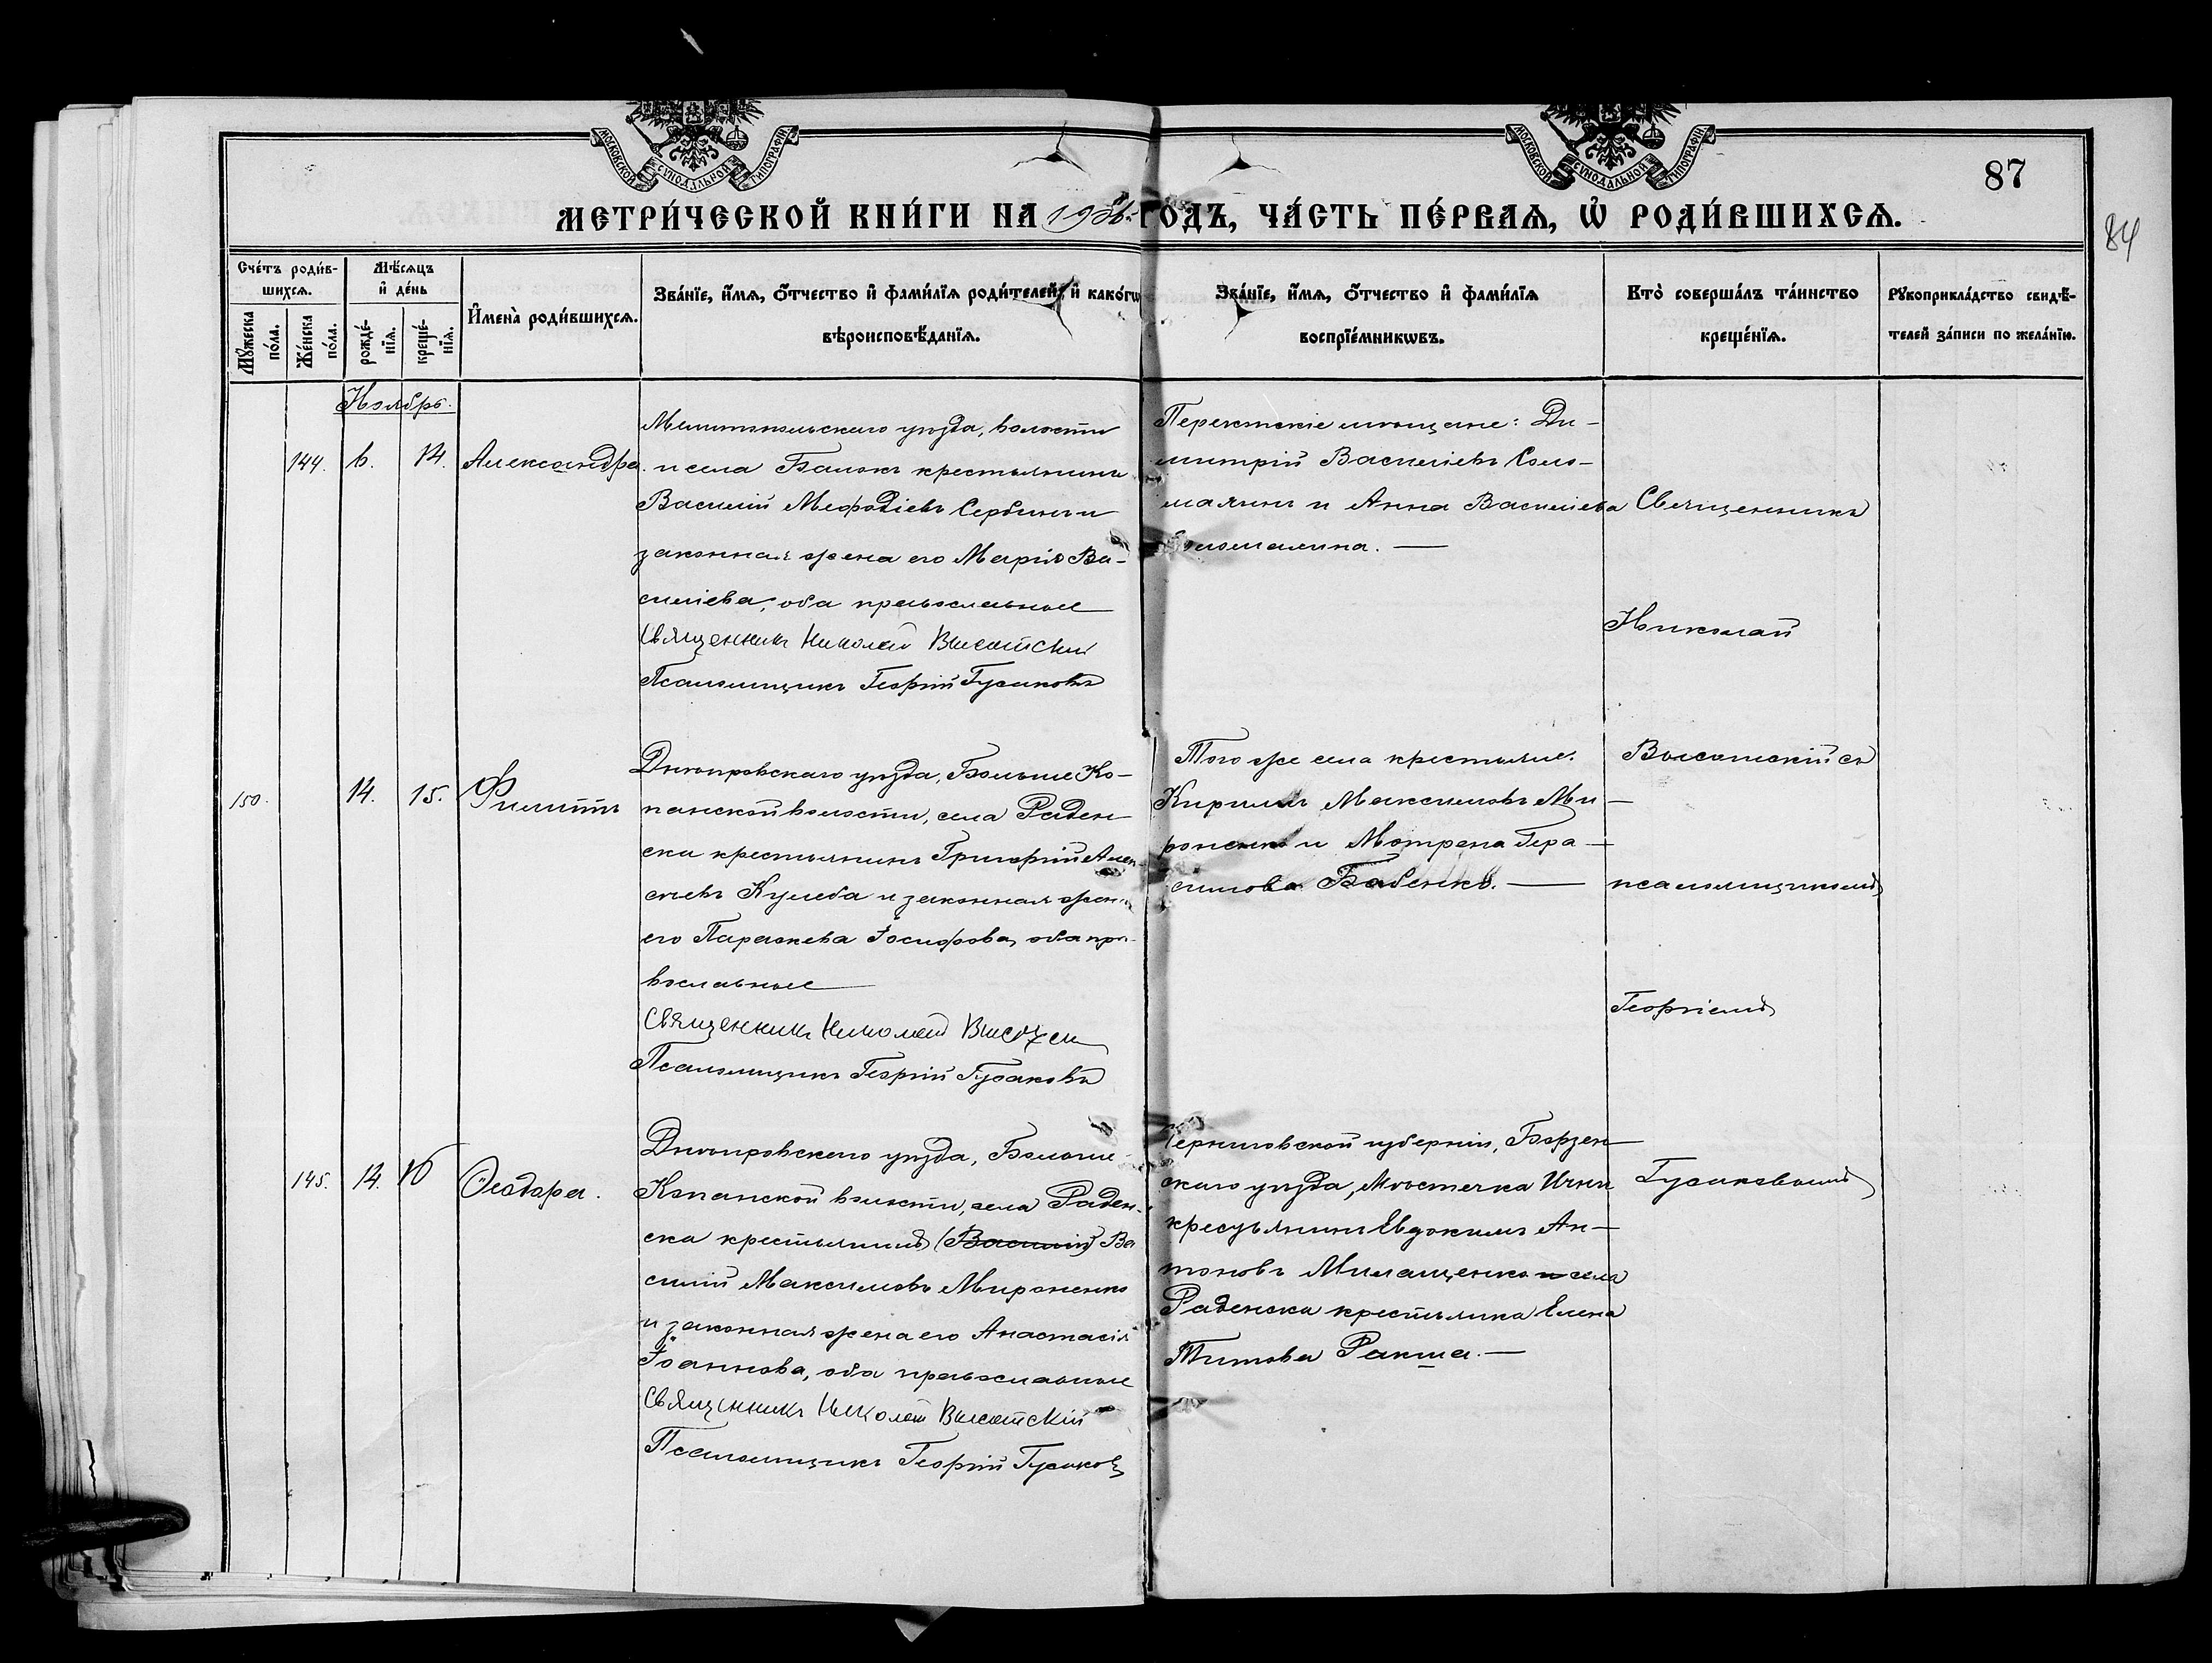 МОСКОВСКОЙ СѴНОДАЛЬНОЙ ТИПОГРАФІИ
МОСКОВСКОЙ СѴНОДАЛЬНОЙ ТИПОГРАФІИ
87
84
МЕТРИ́ЧЕСКОЙ КНИ́ГИ НА ГОДЪ, ЧА́СТЬ ПЕ́РВАѦ, Ѡ РОДИ́ВШИХСѦ.
Сче́тъ роди́в-
шихсѧ.
Мѣ́сѧцъ
и҆ де́нь
Мꙋ́жеска по́ла.
Же́нска по́ла.
рожде́-
нїѧ.
креще́-
нїѧ.
И҆мена̀ роди́вшихсѧ.
Зва́нїе, и҆́мѧ, ѻ҆́тчество и҆ фами́лїѧ роди́телей, и҆ како́гѡ
вѣроисповѣ́данїѧ.
Зва́нїе, и҆́мѧ, ѻ҆́тчество и҆ фами́лїѧ
воспрїе́мникѡвъ.
Кто̀ соверша́лъ та́инство
креще́нїѧ.
Рꙋкоприкла́дство свидѣ́-
телей за́писи по жела́нїю.
Ноябрь.
144.
6.
14.
Александра.
Мелитопольскаго уѣзда, волости
и села Балокъ крестьянинъ
Василій Меѳодіевъ Сербинъ и
законная жена его Марія Ва-
силіева, оба православные
Священникъ Николай Высотскій
Псаломщикъ Георгій Гусаковъ
Перекопскіе мѣщане: Ди-
митрій Василіевъ Соло-
махинъ и Анна Василіева
150.
14.
15.
Филиппъ
Днѣпровскаго уѣзда, Больше Ко-
панской волости, села Раден-
ска крестьянинъ Григорій Алек-
сѣевъ Кулеба и законная жена
его Параскева Іосифова, оба пра-
вославные
Священникъ Николай
Псаломщикъ Георгій Гусаковъ
Того же села крестьяне:
Кириллъ Максимовъ Ми-
роненко и Мотрона Гера-
симова Бабенко.
145.
14.
16
Ѳеодора.
Днѣпровскаго уѣзда, Больше
Копанской волости, села Раден-
ска крестьянинъ (Василій) Ва
силій Максимовъ Мироненко
и законная жена его Анастасія
Іоаннова, оба православные
Священникъ Николай Высотскій
Псаломщикъ Георгій Гусаковъ
Черниговской губерніи, Борзен
скаго уѣзда, Мѣстечка Ични
крестьянинъ Евдокимъ Ан-
тоновъ Милащенко и села
Раденска крестьянка Елена
Титова Ракша.
Священникъ
Николай
Высотскій съ
псаломщикомъ
Георгіемъ
Гусаковымъ